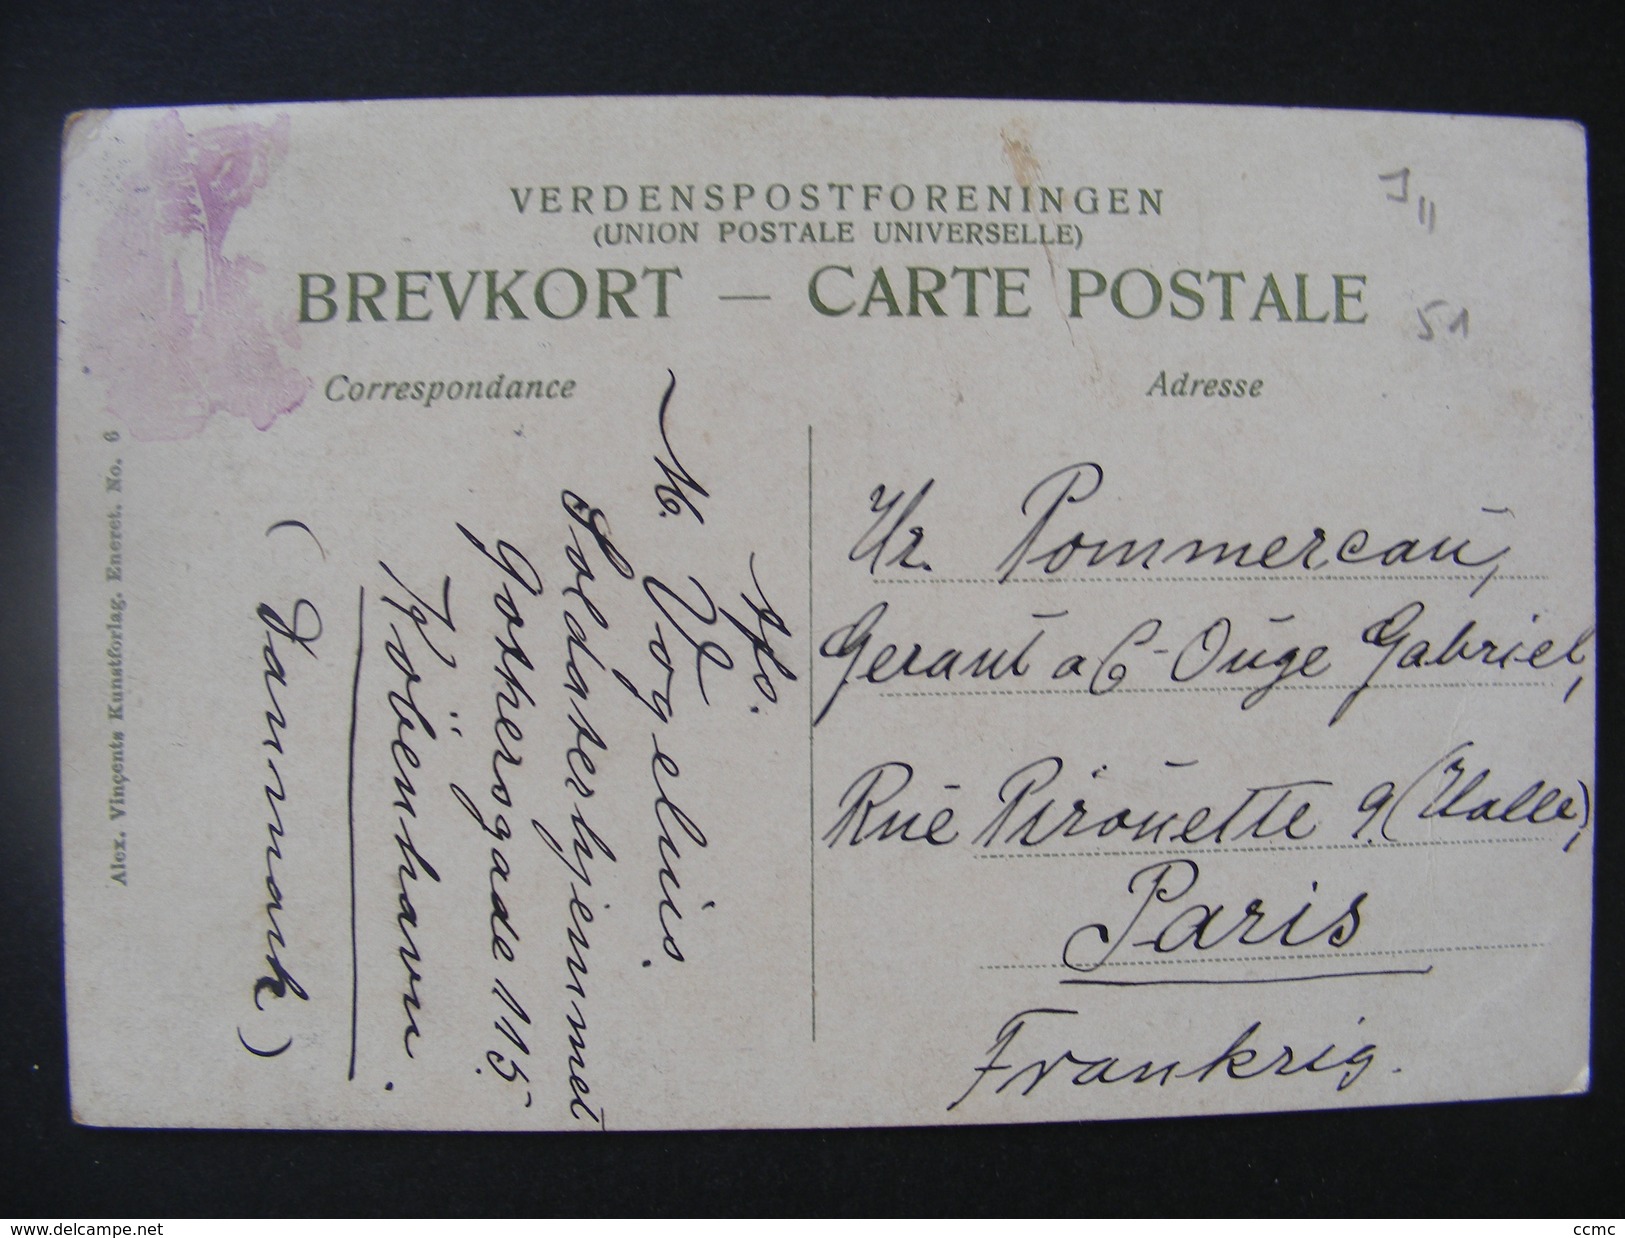 VERDENSPOSTFORENINGEN
(UNION POSTALE UNIVERSELLE)
BREVKORT — CARTE POSTALE
Correspondance
Adresse
51
Afs.
M. Vogelius.
Soldaterhjemmet
Gothersgade 115
Köbenhavn.
(Danmark)
Hr. Pommereau,
Gerant a C- Ouge Gabriel,
Rue Pirouette 9 (Halle),
Paris
Frankrig.
Alex. Vinçents Kunstforlag. Eneret. No. 6
www.delcampe.net
ccmc